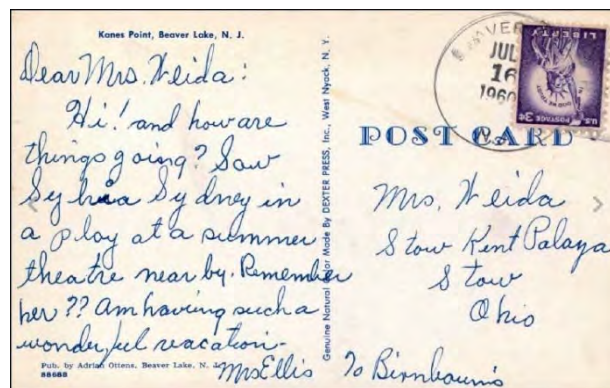 Kanes Point, Beaver Lake, N. J.
Dear Mrs. Weida:
Hi! and how are
things going? Saw
Sylvia Sydney in
a play at a summer
theatre near by. Remember
her?? Am having such a
wonderful vacation-
Mrs Ellis
Pub. by Adrian Ottens, Beaver Lake, N. J.
88688
Genuine Natural Color Made By DEXTER PRESS, Inc., West Nyack, N. Y.
JUL
16
1960
LIBERTY
U.S. POSTAGE 3¢
POST CARD
Mrs. Weida
Stow Kent Palaya
Stow
Ohio
To Birnbaum's